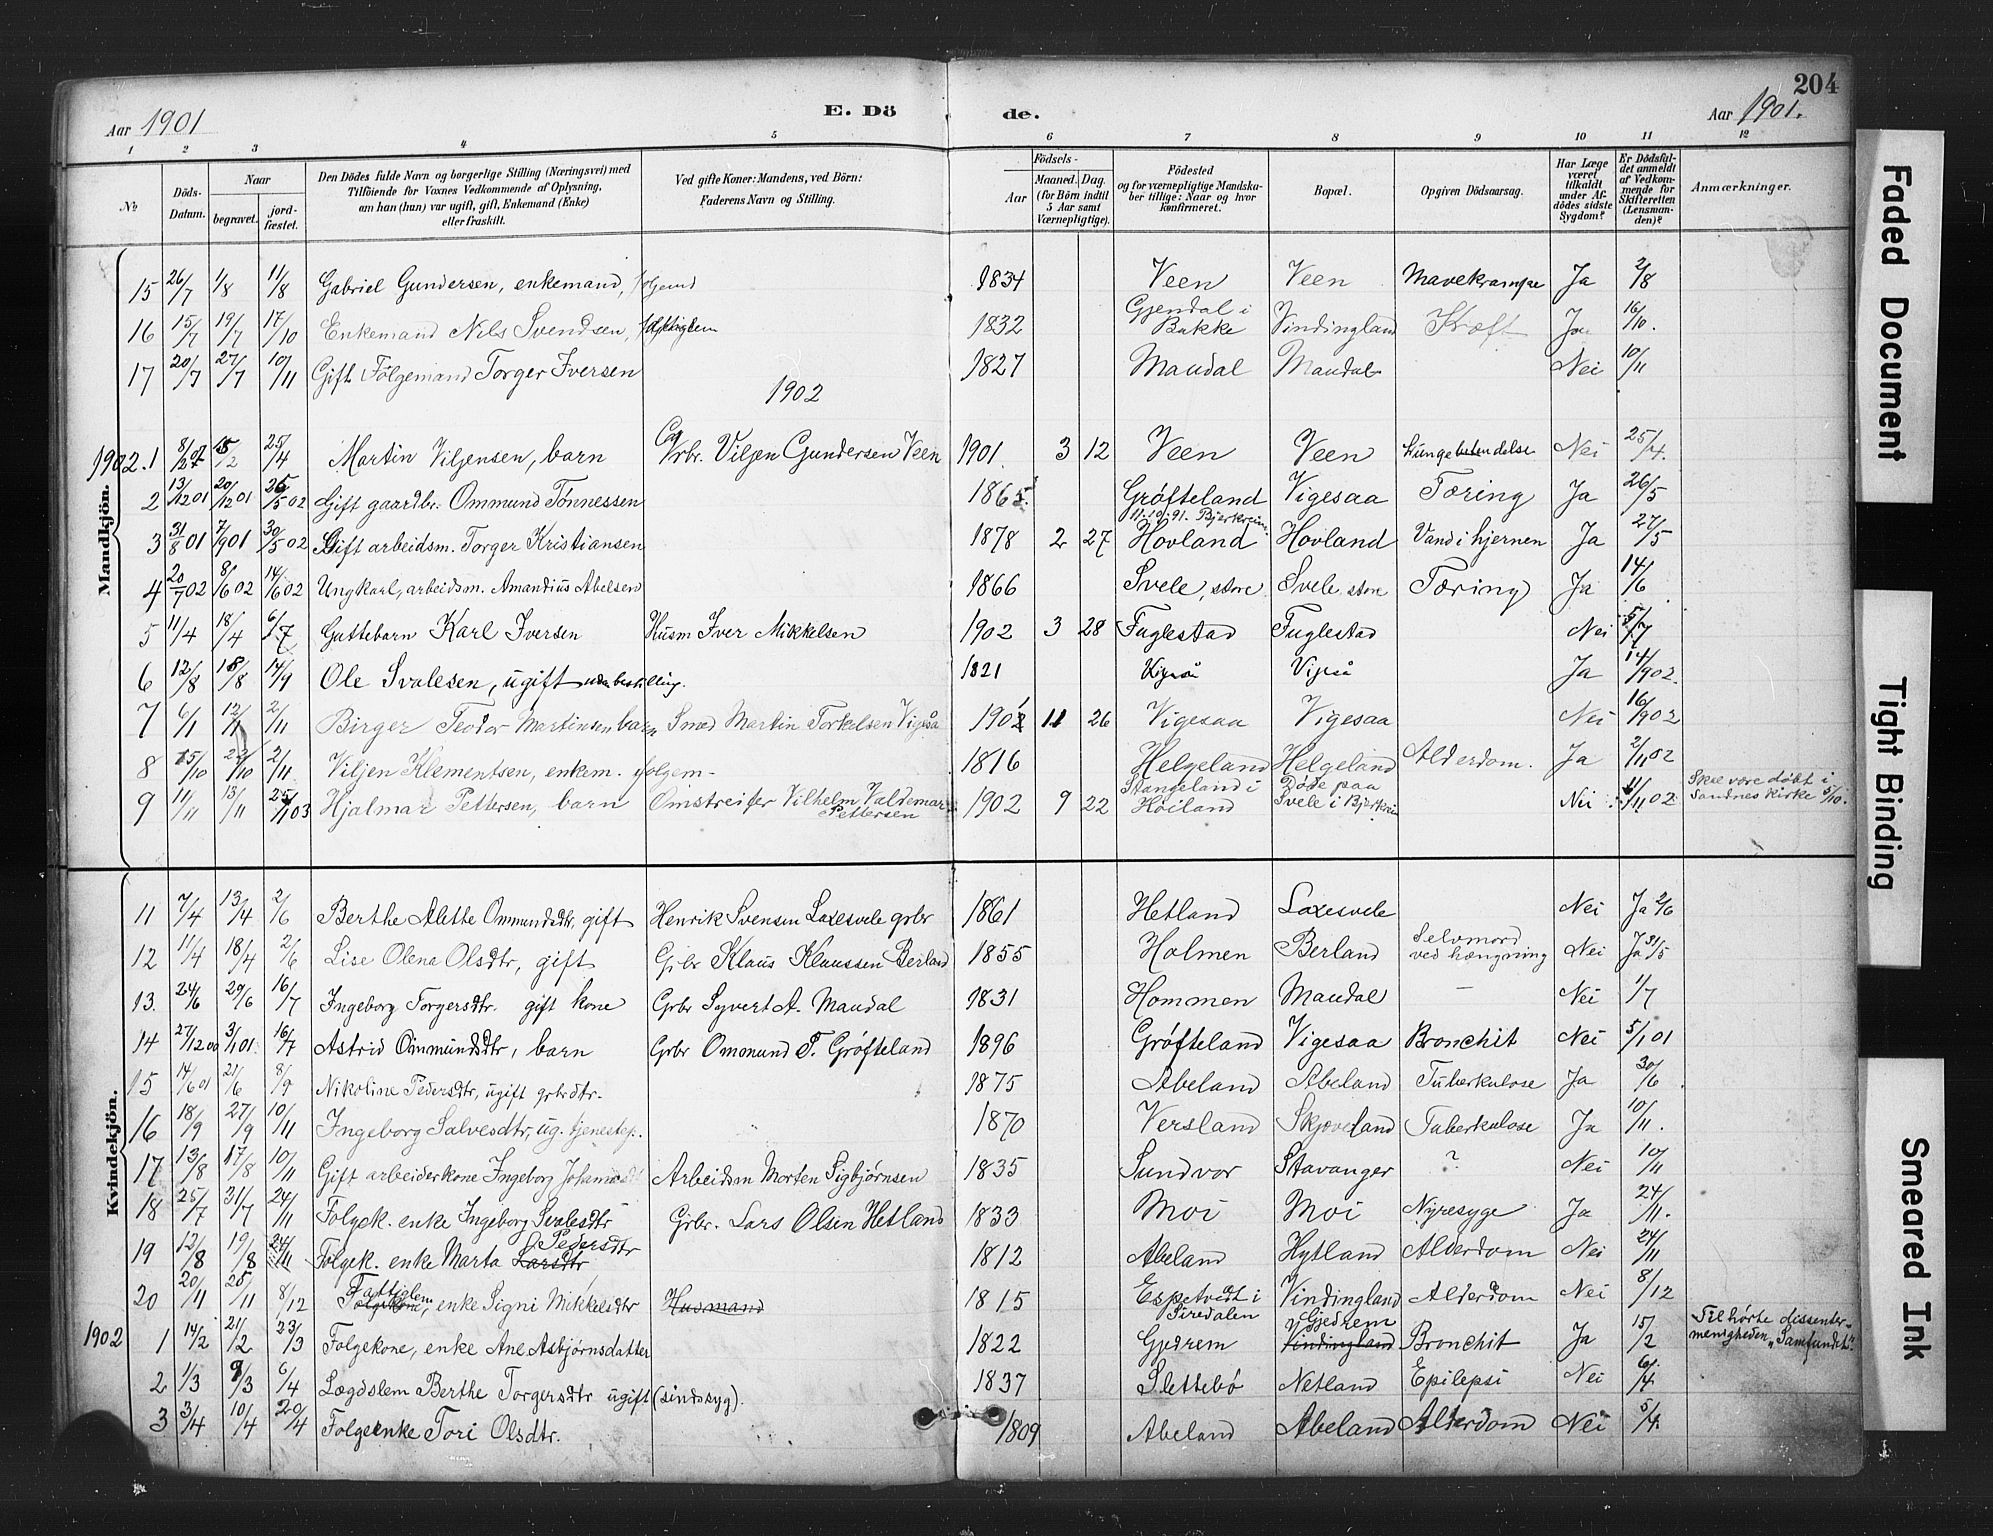 204
Aar 1901
E. Dö de.
Aar 1901.
1 2 3 4 5 6 7 8 9 10 11 12
No
Döds-Datum.
Naar
begravet.
jord-fæstet.
Den Dödes fulde Navn og borgerlige Stilling (Næringsvei) med
Tilföiende for Voxnes Vedkommende af Oplysning,
om han (hun) var ugift, gift, Enkemand (Enke)
eller fraskilt.
Ved gifte Koner: Mandens, ved Börn:
Faderens Navn og Stilling.
Födsels-
Aar
Maaned. Dag.
(for Börn indtil
5 Aar samt
Værnepligtige).
Födested
og for værnepligtige Mandska-
ber tillige: Naar og hvor
konfirmeret.
Bopæl.
Opgiven Dödsaarsag.
Har Læge
været
tilkaldt
under Af-
dödes sidste
Sygdom?
Er Dödsfal-
det anmeldt
af Vedkom-
mende for
Skifteretten
(Lensman-
den)?
Anmærkninger.
Mandkjön.
15 26/7 1/8 11/8 Gabriel Gundersen, enkemand, 1834 Veen Veen Mavekrampe Ja 2/8
16 15/7 19/7 17/10 Enkemand Nils Svendsen, 1832 Gjendal i Bakke Vindingland Kræft Ja 16/10.
17 20/7 27/7 10/11 Gift Følgemand Torger Iversen 1827 Maudal Maudal Nei 10/11
1902
1902. 1 25/4 Martin Viljensen, barn Grbr. Viljen Gundersen Veen 1901. 3 12 Veen Veen Lungebetendelse Nei 25/4.
2 13/12 01 20/12 01 26/5 02 Gift gaardbr. Ommund Tønnessen 1865. Grøfteland Vigesaa Tæring Ja 26/5
3 31/8 01 7/9 01 30/5 02 Gift arbeidsm. Torger Kristiansen 1878 2 27 11.10.91. Bjerkreim Hovland Hovland Vand i hjernen Ja 27/5
4 20/7 02 8/6 02 14/6 02 Ungkarl, arbeidsm. Amandius Abelsen 1866 Svele, store Svele, store Tæring Ja 14/6
5 11/4 18/4 6/7 Guttebarn Karl Iversen Husm Iver Mikkelsen 1902 3 28 Fuglestad Fuglestad Nei 5/7
6 12/8 18/8 14/9 Ole Svalesen, ugift uden bestilling. 1821 Vigeså Vigeså Ja 14/9 02.
7 6/1 12/1 2/11 Birger Teodor Martinsen barn Smed Martin Torkelsen Vigeså 1901 11 26 Vigesaa Vigesaa Nei 16/9 02
8 15/10 22/10 2/11 Viljen Klementsen, enkem. følgem- 1816 Helgeland Helgeland Alderdom. Ja 2/11 02
9 11/11 13/11 25/1 03 Hjalmar Pettersen, barn Omstreifer Vilhelm Valdemar Pettersen 1902 9 22 Stangeland i Høiland Døde paa Svele i Bjerkreim Nei 11/11 02 Skal være døbt i Sandnes kirke 5/10.
Kvindekjön.
11 7/4 13/4 2/6 Berthe Alette Ommundsdtr, gift Henrik Svensen Laxesvele grbr 1861 Hetland Laxesvele Nei Ja 2/6
12 11/4 18/4 2/6 Lise Olena Olsdtr, gift Grbr Klaus Klaussen Berland 1855 Holmen Berland Selvmord ved hængning Nei Ja 31/5
13. 24/6 29/6 16/7 Ingeborg Torgersdtr. gift kone Grbr Syvert A. Maudal 1831 Hommen Maudal - Nei 1/7
14 27/12 00 3/1 01. 16/7 Astrid Ommundsdtr, barn Grbr Ommund T. Grøfteland 1896 Grøfteland Vigesaa Bronchit Nei 5/1 01
15 14/6 01 21/6 8/9 Nikoline Pedersdtr, ugift grbrdtr. 1875 Abeland Abeland Tuberkulose Ja 30/6
16 18/9 27/9 10/11 Ingeborg Salvesdtr, ug. tjenestep. 1870 Versland Skjæveland Tuberkulose Ja 10/11.
17 13/8 17/8 10/11 Gift arbeiderkone Ingeborg Arbeidsm Morten Sigbjørnsen 1835 Sundvor Stavanger ? Nei 10/11
18 25/7 31/7 24/11 Følgek. enke Ingeborg Svalesdtr Grbr. Lars Olsen Hetland 1833 Moi Moi Nyresyge Ja 24/11.
19 12/8 19/8 24/11 Følgek. enke Marta Larsdtr Pedersdtr 1812 Abeland Hytland Alderdom Nei 24/11
20 20/11 25/11 8/12 Følgekone, Fattiglem enke Signi Mikkelsdtr Husmand 1815 Espetvedt i Siredalen Vindingland Alderdom Nei 8/12
1902 1 14/2 21/2 23/3 Følgekone, enke Ane Asbjørnsdatter 1822 Gjedrem Vindingland Gjedrem Bronchit Ja 15/2 Tilhørte dissenter-menigheden „Samfundet".
2 1/3 9/3 6/4 Lægdslem Berthe Torgersdtr ugift (sindssyg). 1837 Slettebø Netland Epilepsi Nei 6/4
3 3/4 10/4 20/4 Følgeenke Tori Olsdtr. 1809 Abeland Abeland Alderdom Nei 5/4.
Faded Document
Tight Binding
Smeared Ink